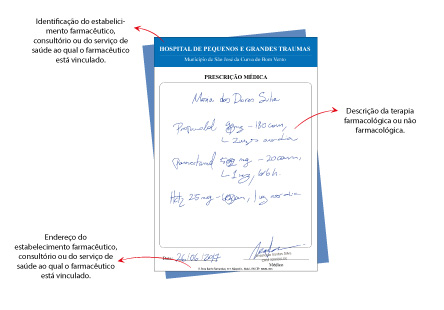 Identificação do estabeleci-
mento farmacêutico,
consultório ou do serviço de
saúde ao qual o farmacêutico
está vinculado.
HOSPITAL DE PEQUENOS E GRANDES TRAUMAS
Município de São José da Curva do Bom Vento
PRESCRIÇÃO MÉDICA
Maria das Dores Silva
Propranolol - 180 com,
paracetamol 500 mg - 20 com,
6/6h.
Hctz 25 mg -
Descrição da terapia
farmacológica ou não
farmacológica.
Endereço do
estabelecimento farmacêutico,
consultório ou do serviço de
saúde ao qual o farmacêutico
está vinculado.
Data: 26/06/2017
Médico